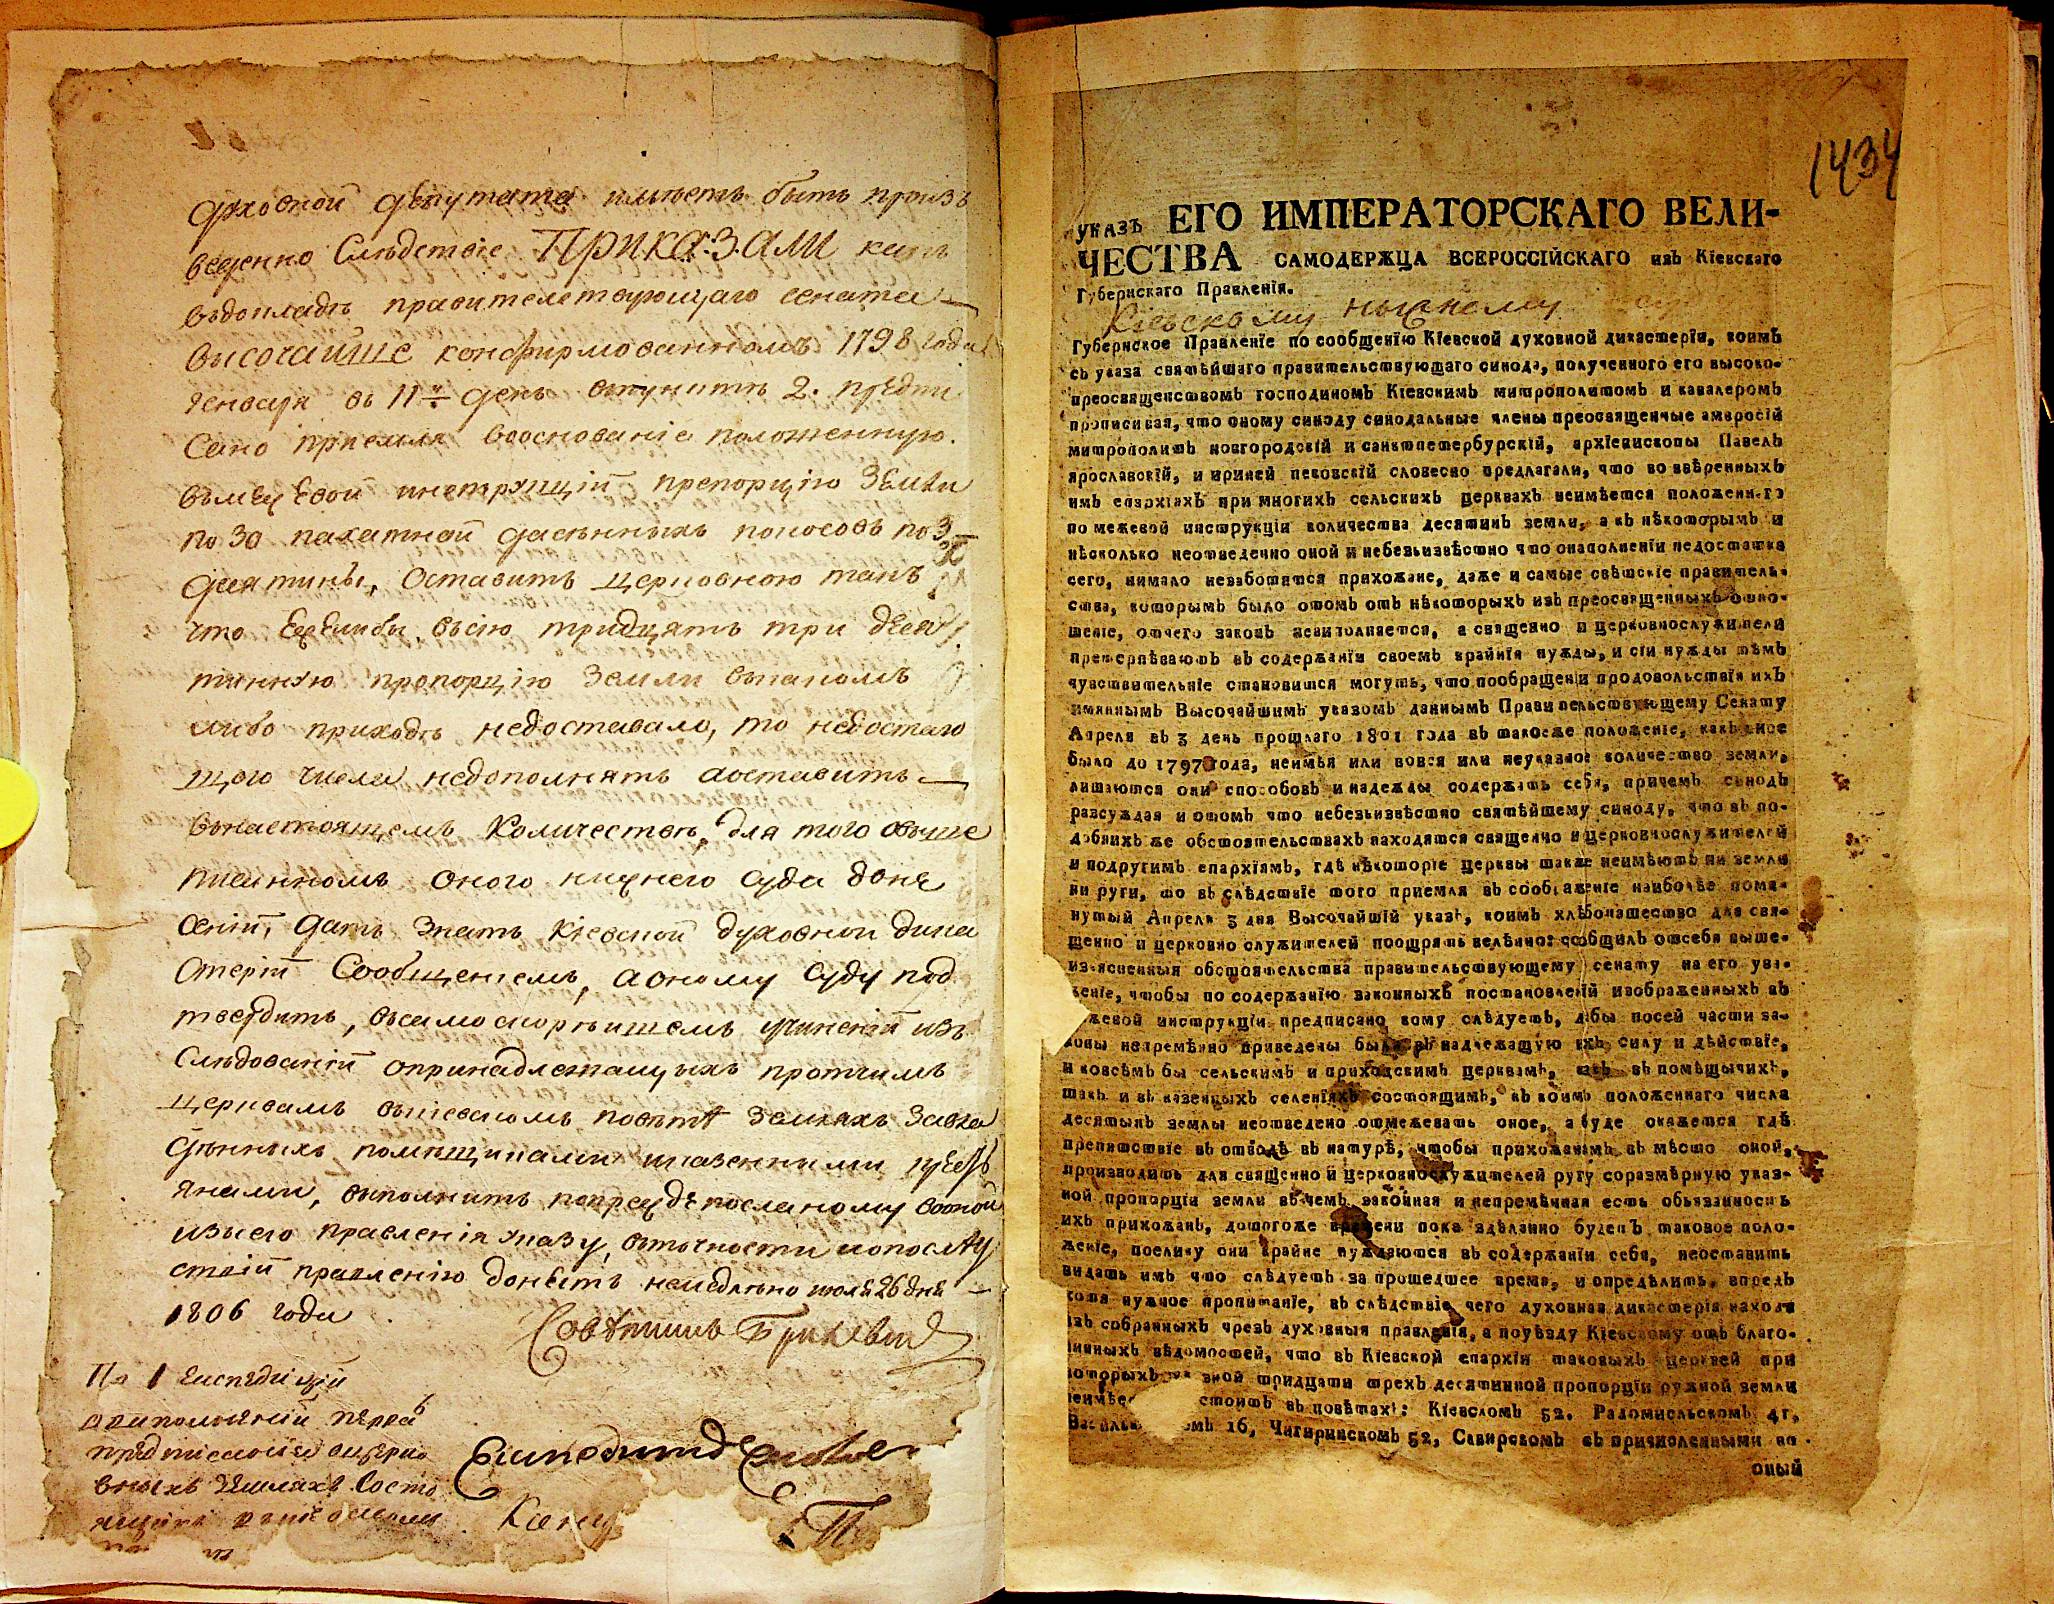 духовной депутата имѣетъ быть произъ
ведено Слѣдствіе ПРИКАЗАЛИ какъ
въдокладѣ правителствующаго сената
высочайше конфирмованномъ 1798 года
генваря въ 11й день въпунктѣ 2. предпи
сано приемля воснованіе положенную
въмежевой инструкціи препорцію земли
по 30 пахатной дасѣнныхъ покосовъ по 3
десятины, оставить церковною такъ
что ежелибы въсію тридцять три деся
тинную пропорцію земли вкакомъ
либо приходѣ недоставало, то недостаю
щаго числа недополнять аоставить
внастоящемъ количествѣ, для того овыше
писанномъ оного нижнего суда доне
сеніи, дать знать Кіевской духовной дика
стеріи Сообщеніемъ, аоному суду под
твердить, въсамоскорѣишемъ учиненіи изъ
слѣдованіи опринадлежащихъ протчимъ
церквамъ вкіевскомъ повѣтѣ земляхъ завла
дѣнныхъ помѣщиками иказенными кресть
янами, выполнить попрежде посланому воной
изъсего правленія указу, въточности ипослѣд
ствіи правленію донесть немедлѣнно июля 26 дня
1806 года
Совѣтникъ
По 1 експедиціи
овыполненіи перва
предписанія оцерко
вныхъ земляхъ Состо
Кіеву
1434
указъ ЕГО ИМПЕРАТОРСКАГО ВЕЛИ-
ЧЕСТВА САМОДЕРЖЦА ВСЕРОССІЙСКАГО изъ Кіевскаго
Губернскаго Правленія.
Кіевскому нижнему
Губернское Правленіе по сообщенію Кіевской духовной дикастеріи, коимъ
съ указа святѣйшаго правительствующаго синода, полученного его высоко-
преосвященствомъ господиномъ Кіевскимъ митрополитомъ и кавалеромъ
прописивая, что оному синоду синодальные члены преосвященные амвросій
митрополитъ новгородскій и санктпетербурскій, архіепископы Павелъ
ярославскій, и ириней псковскій словесно предлагали, что во ввѣренныхъ
имъ епархіяхъ при многихъ сельскихъ церквахъ неимѣется положеннаго
по межевой инструкціи количества десятинъ земли, а къ нѣкоторымъ и
нѣсколько неотведечно оной и небезъизвѣстно что онаполненіи недостатка
сего, нимало незаботятся прихожане, даже и самые свѣтскіе правитель-
ства, которымъ было отомъ отъ нѣкоторыхъ изъ преосвященныхъ отно-
шеніе, отчего законъ невиполняется, а священно и церковнослужители
претерпѣваютъ въ содержаніи своемъ крайнія нужды, и сіи нужды тѣмъ
чувствительніе становится могутъ, что пообращени продовольствія ихъ
имяннымъ Высочайшимъ указомъ даннымъ Правительствующему Сенату
Апреля въ 3 день прошлаго 1801 года въ такоеже положеніе, какъ оное
было до 1797 года, неимѣя или вовся или неуказное количество земли,
лишаются они способовъ и надежды содержать себя, причемъ синодъ
разсуждая и отомъ что небезъизвѣстно святѣйшему синоду, что въ по-
добнихъ же обстоятельствахъ находятся священно и церковнослужителей
и подругимъ епархіямъ, гдѣ нѣкоторіе церквы также неимѣютъ ни земли
ни руги, то въ слѣдствіе того приемля въ сообрааженіе наиболѣе помя-
нутый Апреля 3 дня Высочайшій указъ, коимъ хлѣбопашество для свя-
щенно и церковно служителей поощрять велѣнно: сообщилъ отсебя выше-
изъясненныя обстоятельства правительствующему сенату на его ува-
женіе, чтобы по содержанію законныхъ постановленій изображенныхъ въ
межевой инструкціи предписано кому слѣдуетъ, дабы посей части за-
коны непремѣнно приведены были въ надлежащую ихъ силу и дѣйствіе,
и ковсѣмъ бы сельскимъ и приходскимъ церквамъ, какъ въ помѣщычихъ,
такъ и въ казенныхъ селеніяхъ состоящимъ, къ коимъ положеннаго числа
десятынъ землы неотведено отмежевать оное, а буде окажется гдѣ
препятствіе въ отводѣ въ натурѣ, чтобы прихожанамъ въ мѣсто оной,
производить для священно и церковнослужителей ругу соразмѣрную указ-
ной пропорціи земли въ чемъ законная и непремѣнная есть обьязанность
ихъ прихожанъ, дотогоже времени пока здѣланно будетъ таковое поло-
женіе, поелику они крайне нуждаются въ содержаніи себя, неоставить
видать имъ что слѣдуетъ за прошедшее время, и опредѣлить впредь
хотя нужное пропитаніе, въ слѣдствіе чего духовная дикастерія находя
изъ собранныхъ чрезъ духовныя правленія, а поуѣзду Кіевскому отъ благо-
чинныхъ вѣдомостей, что въ Кіевской епархіи таковыхъ церквей при
которыхъ указной тридцати трехъ десятинной пропорціи ружной земли
неимѣе стоитъ въ повѣтахъ: Кіевсломъ 52, Радомисльскомъ 41,
Васильк омъ 16, Чигиринскомъ 52, Сквирскомъ съ причисленными во
оный